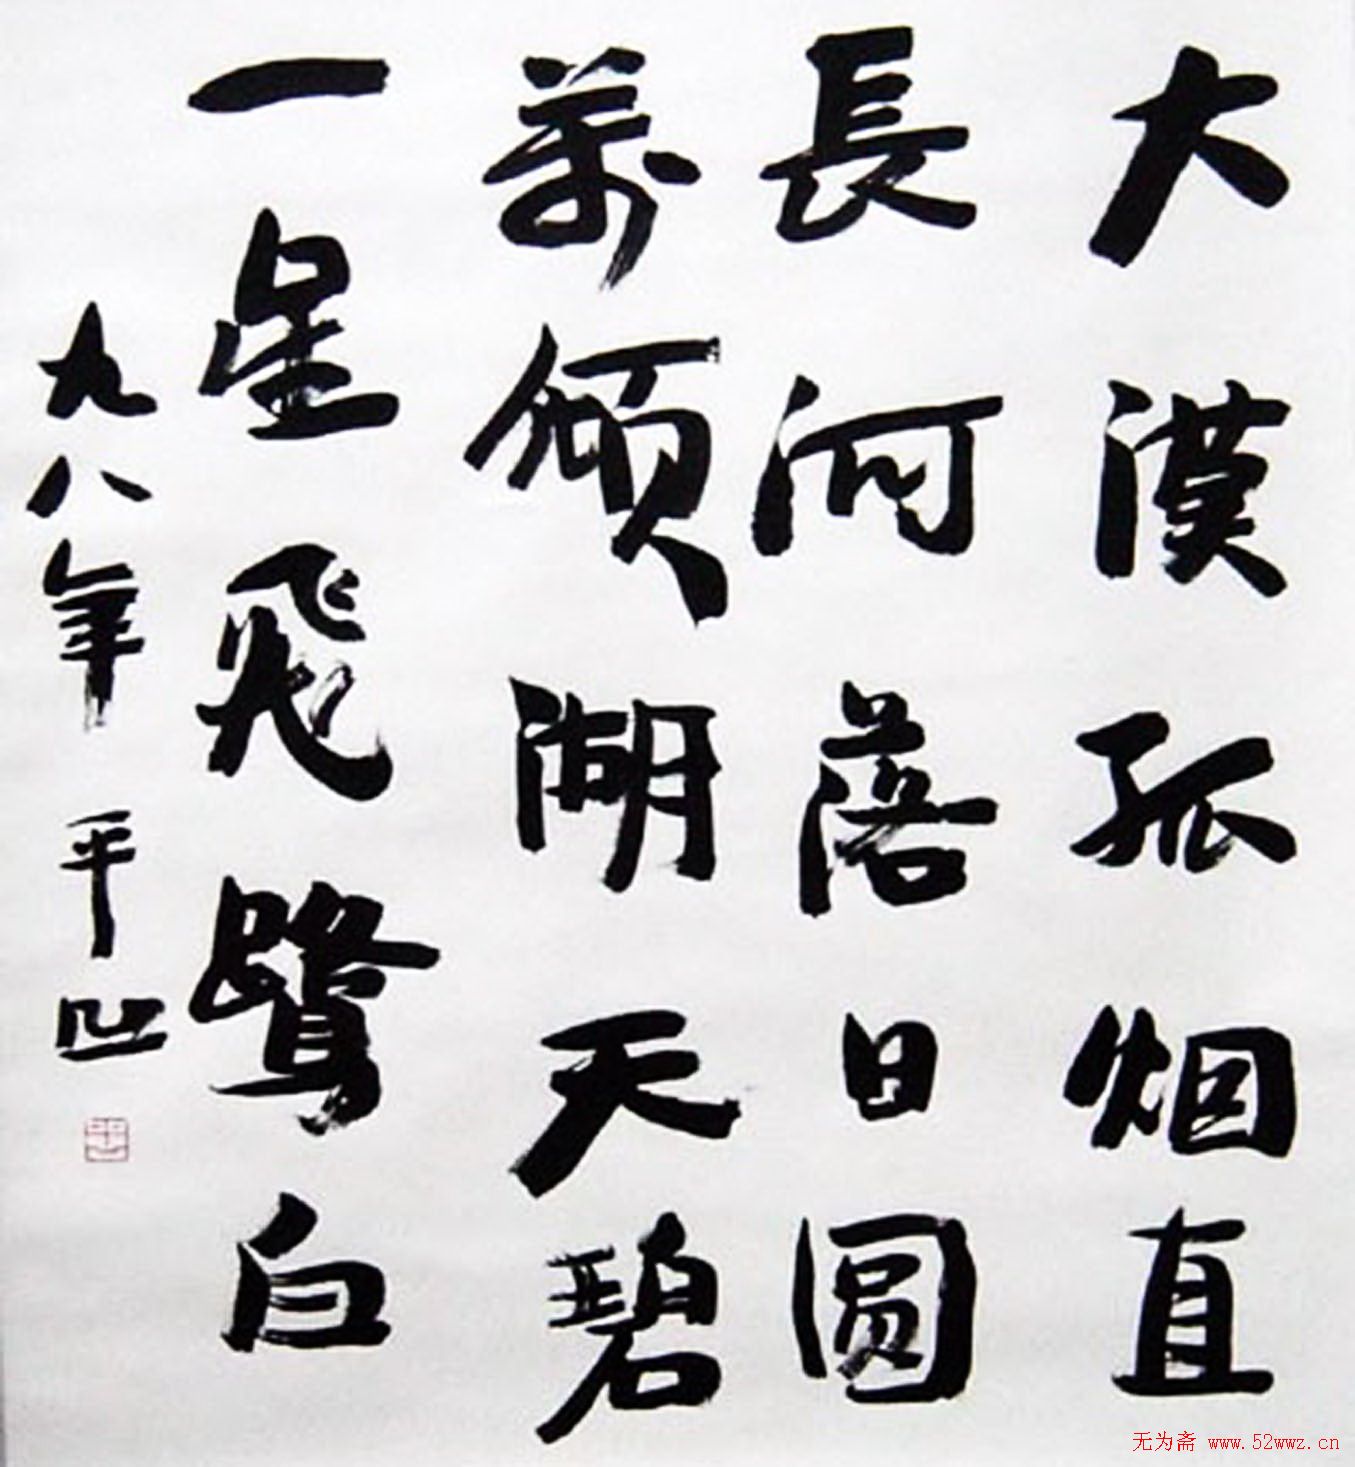 大漠孤烟直
長河落日圆
萬顷湖天碧
一星飛鹭白
九八年 平凹
无为斋 www.52wwz.cn